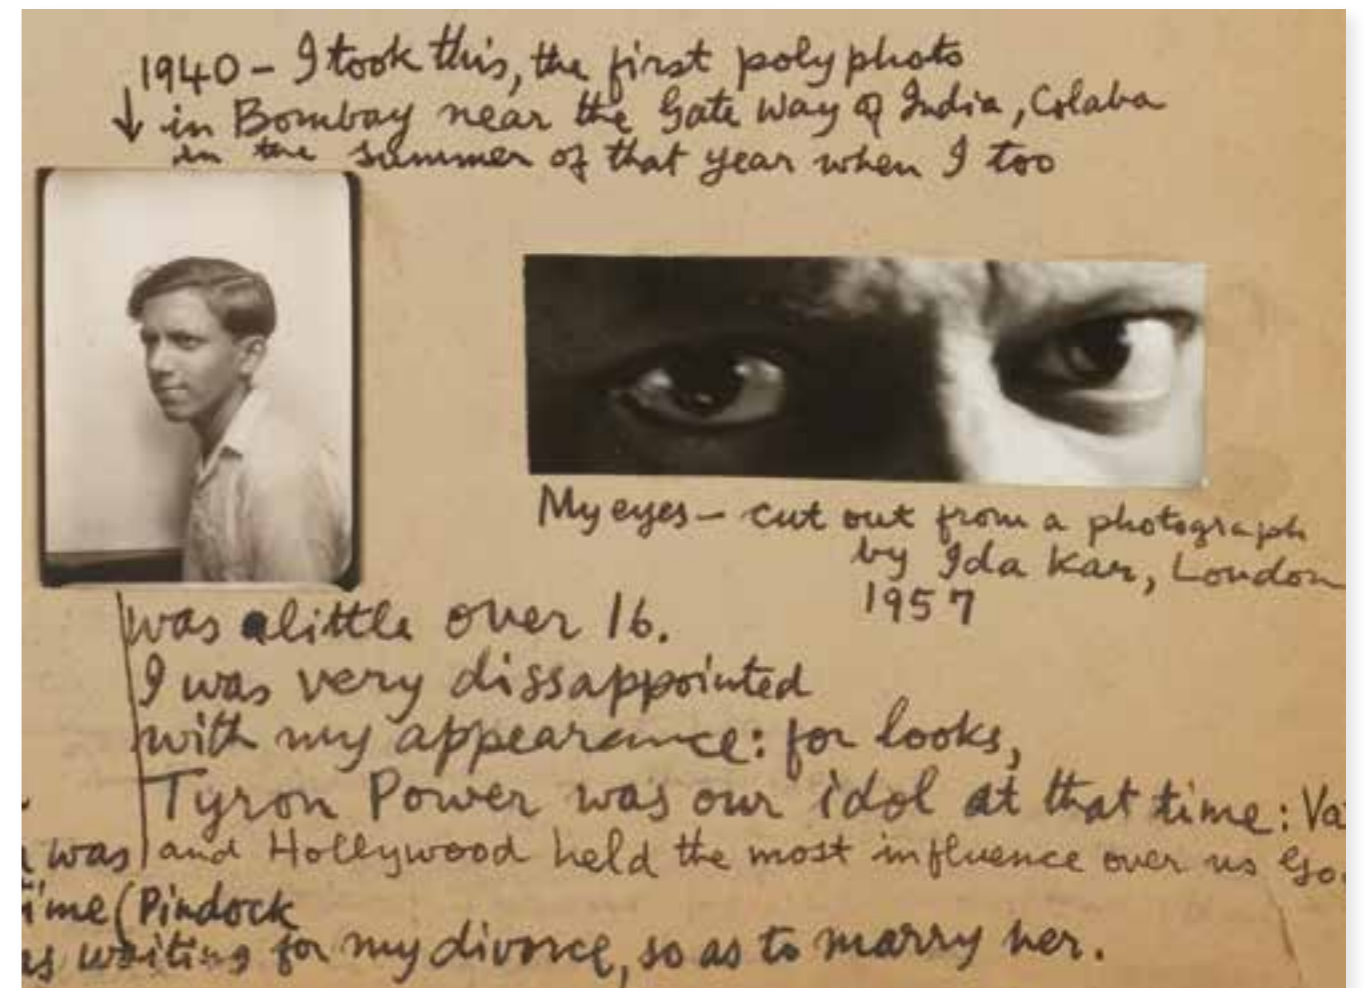 1940 - I took this, the first poly photo
in Bombay near the Gate Way of India, Colaba
in the summer of that year when I too
My eyes - cut out from a photograph
by Ida Kar, London
1957
was a little over 16.
I was very dissappointed
with my appearance: for looks,
Tyron Power was our idol at that time: Va
was and Hollywood held the most influence over us Go
time (Pindock
as waiting for my divorce, so as to marry her.